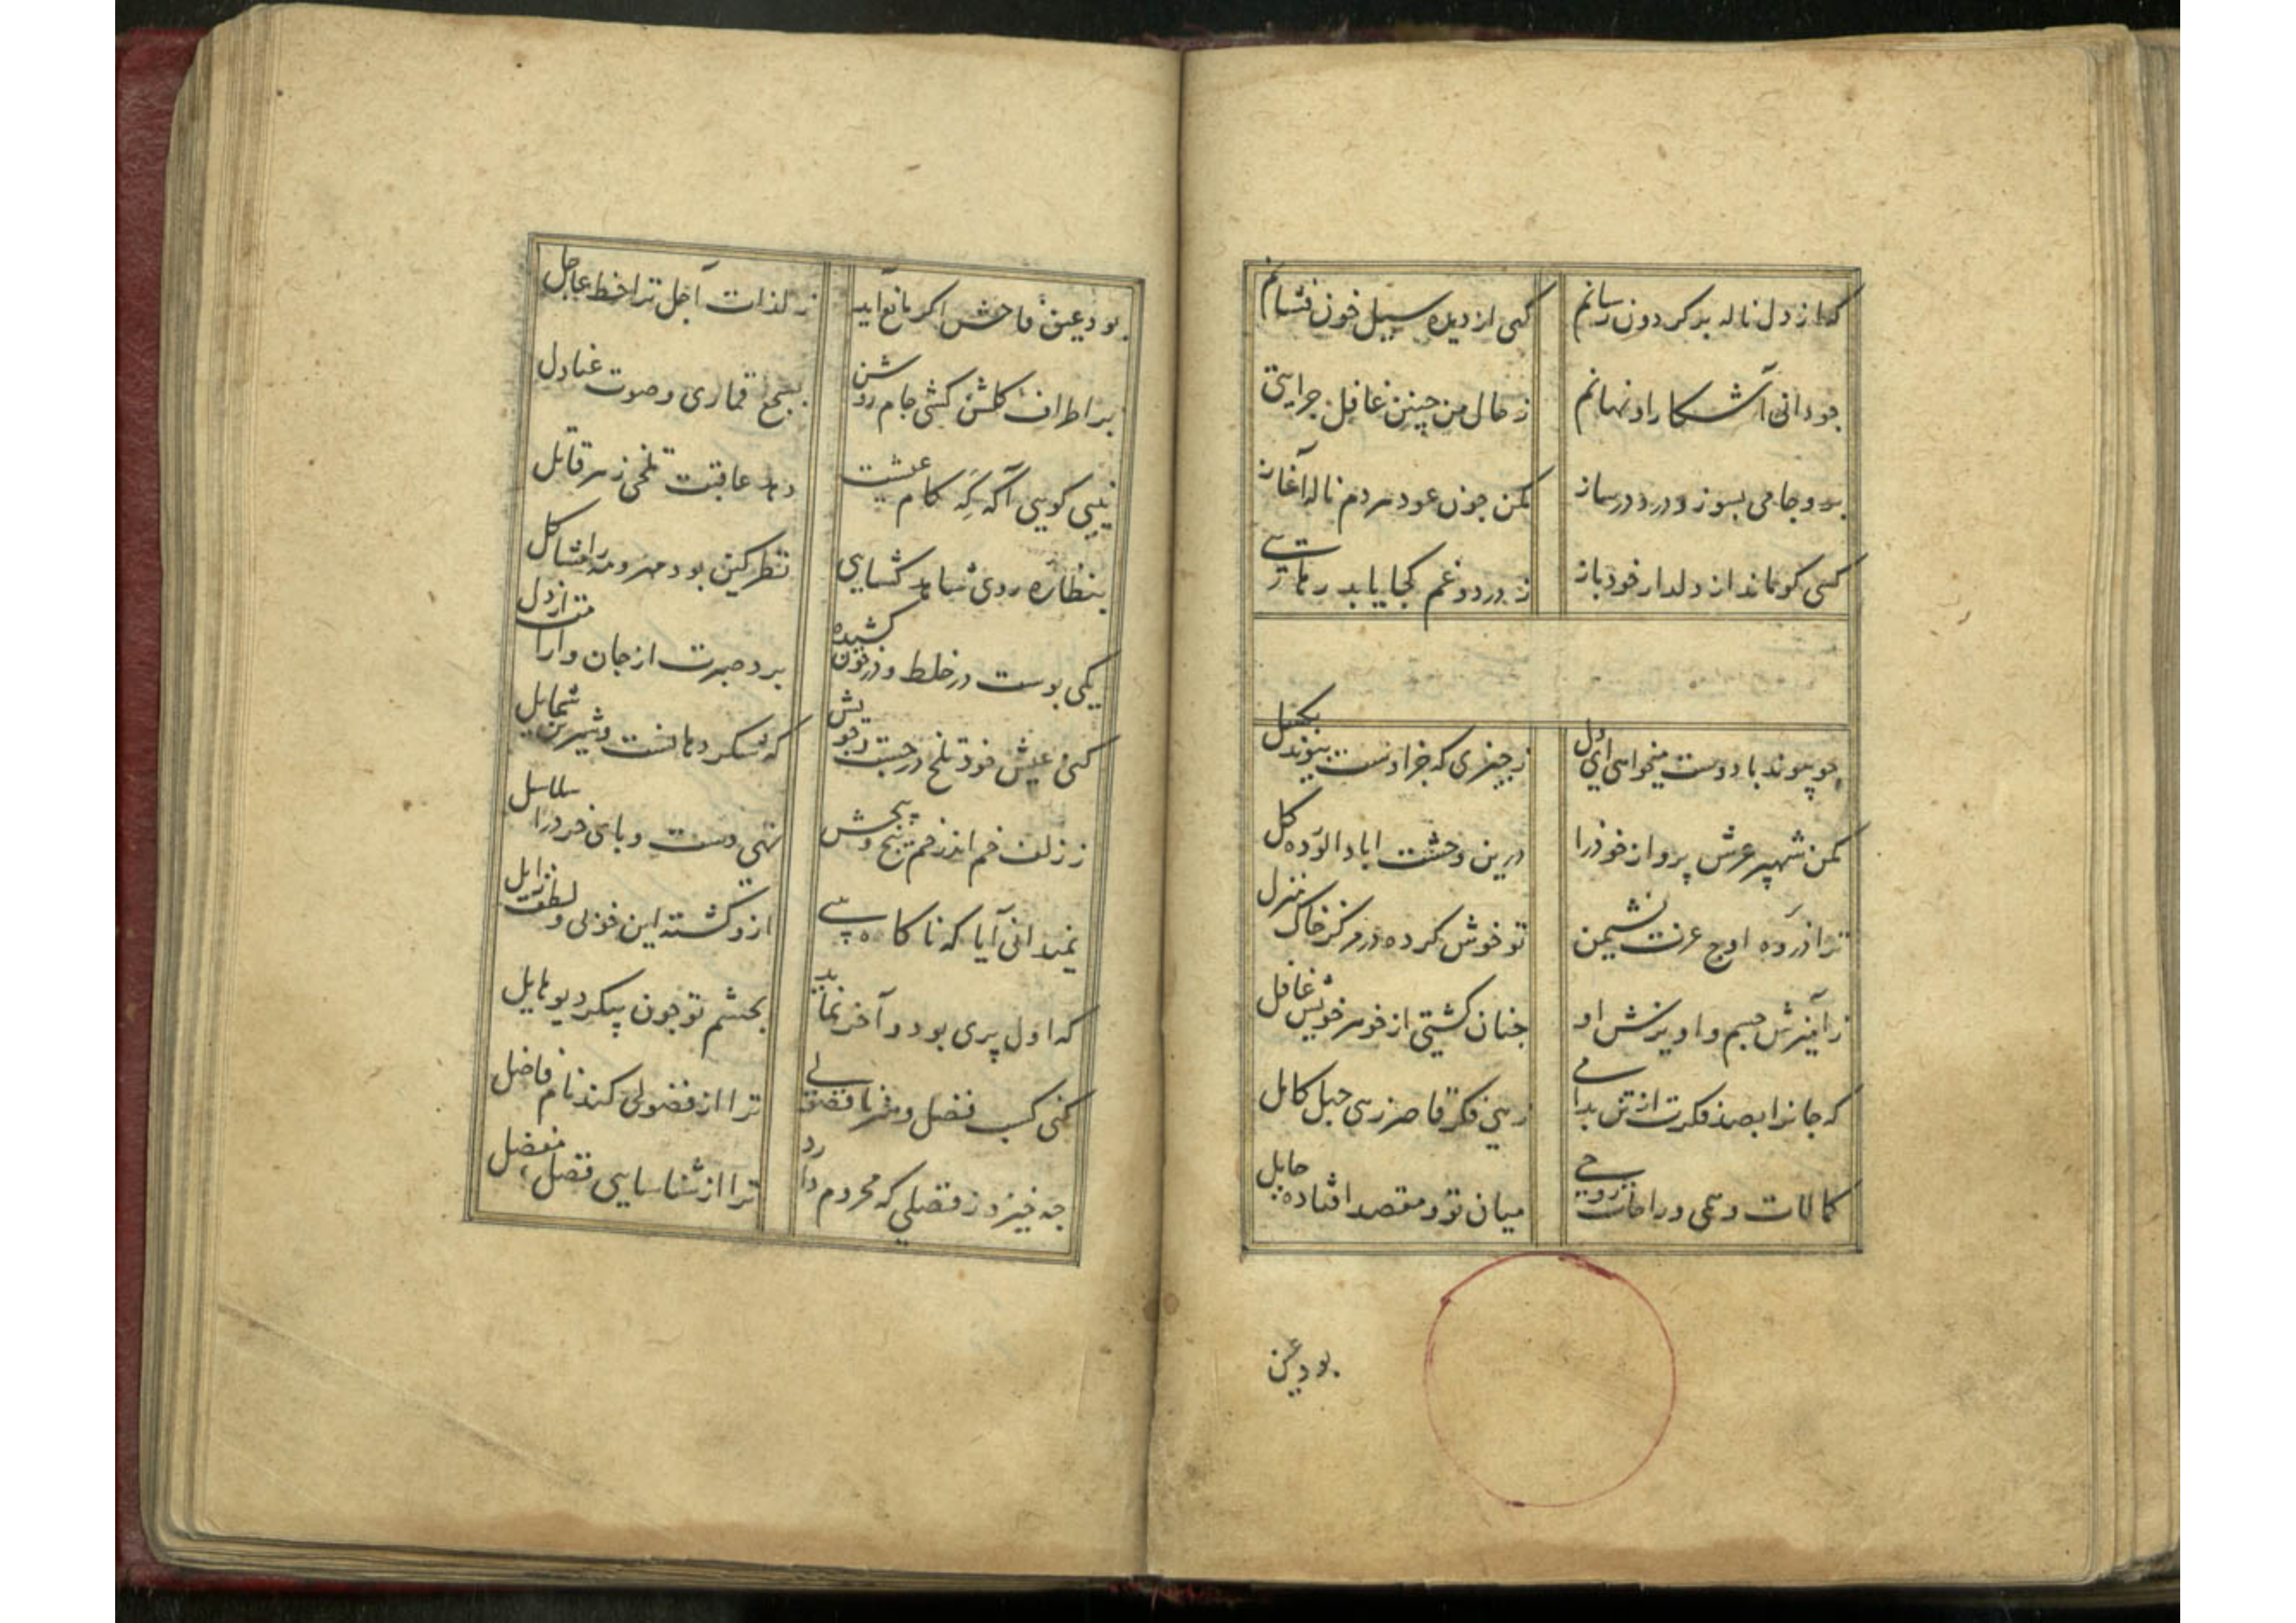 که از دل ناله بر کردون رسانم
کهی از دیده سیل خون فشانم
جو دانی آشکارا و نهانم
ز حال من چنین غافل جرایی
برو جامی بسوز و درد درساز
مکن جون عود هردم ناله آغاز
کسی کو ماند از دلدار خود باز
ز درد و غم کجا یابد رهایی
چو پیوند با دوست میخواهی ای دل
ز چیزی که جز اوست پیوند بکسل
مکن شهپر عرش پرواز خودرا
درین وحشت اباد الوده کل
ترا ذروه اوج عزت نشیمن
تو خوش کرده در مرکز خاک منزل
ز آمیزش جسم و اویزش او
جنان کشتی از خوهر خویش غافل
که جانرا بصد فکرت از تن بدانی
زهی فکر قاصر زهی جهل کامل
کمالات وهمی و راحات روحی
میان تو و مقصد افتاده حایل
بود عین
بود عین فاحش اکر مانع آید
ز لذات آجل ترا حظ عاجل
بر اطراف کلشن کشی جام روشن
بسجع قماری و صوت عنادل
نیی کویی آکه که کام عیشت
دهد عاقبت تلخی زهر قاتل
بنظاره روی شاهد کشایی
نظر کین بود مهر و مه را مشاکل
یکی پوست در خلط و در خون کشیده
برد صبرت از جان و ارامت از دل
کنی عیش خود تلخ در جست و جویش
که شکر دهانست و شیرین شمایل
ز زلف خم اندر خم پیچ پیچش
نهی دست و پای خرد را سلاسل
نمیدانی آیا که ناکاه پیی
ازو کشته این خوبی و لطف زایل
که اول پری بود و آخر نماید
بچشم تو جون پیکر دیو هایل
کنی کسب فضل و هنر تا فضولی
ترا از فضولی کند نام فاضل
جه خیزد ز فضلی که محروم دارد
ترا از شناسایی فضل مفضل